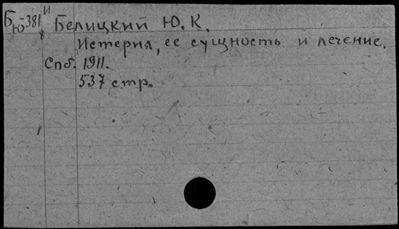 Бю-381 и Белицкий Ю. К.
Истерия, ее сущность и лечение.
Спб. 1911.
537 стр.